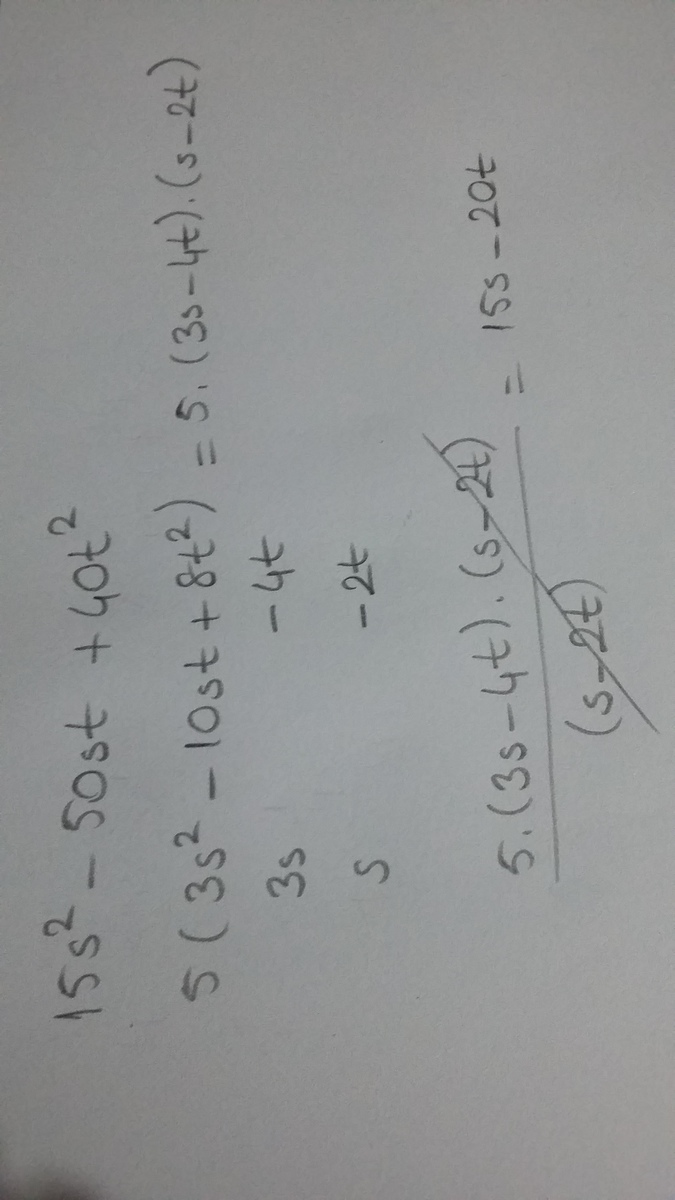 15s² - 50st + 40t²
5 (3s² - 10st + 8t²) = 5.(3s-4t).(s-2t)
3s -4t
s -2t
5.(3s-4t).(s-2t) = 15s - 20t
(s-2t)